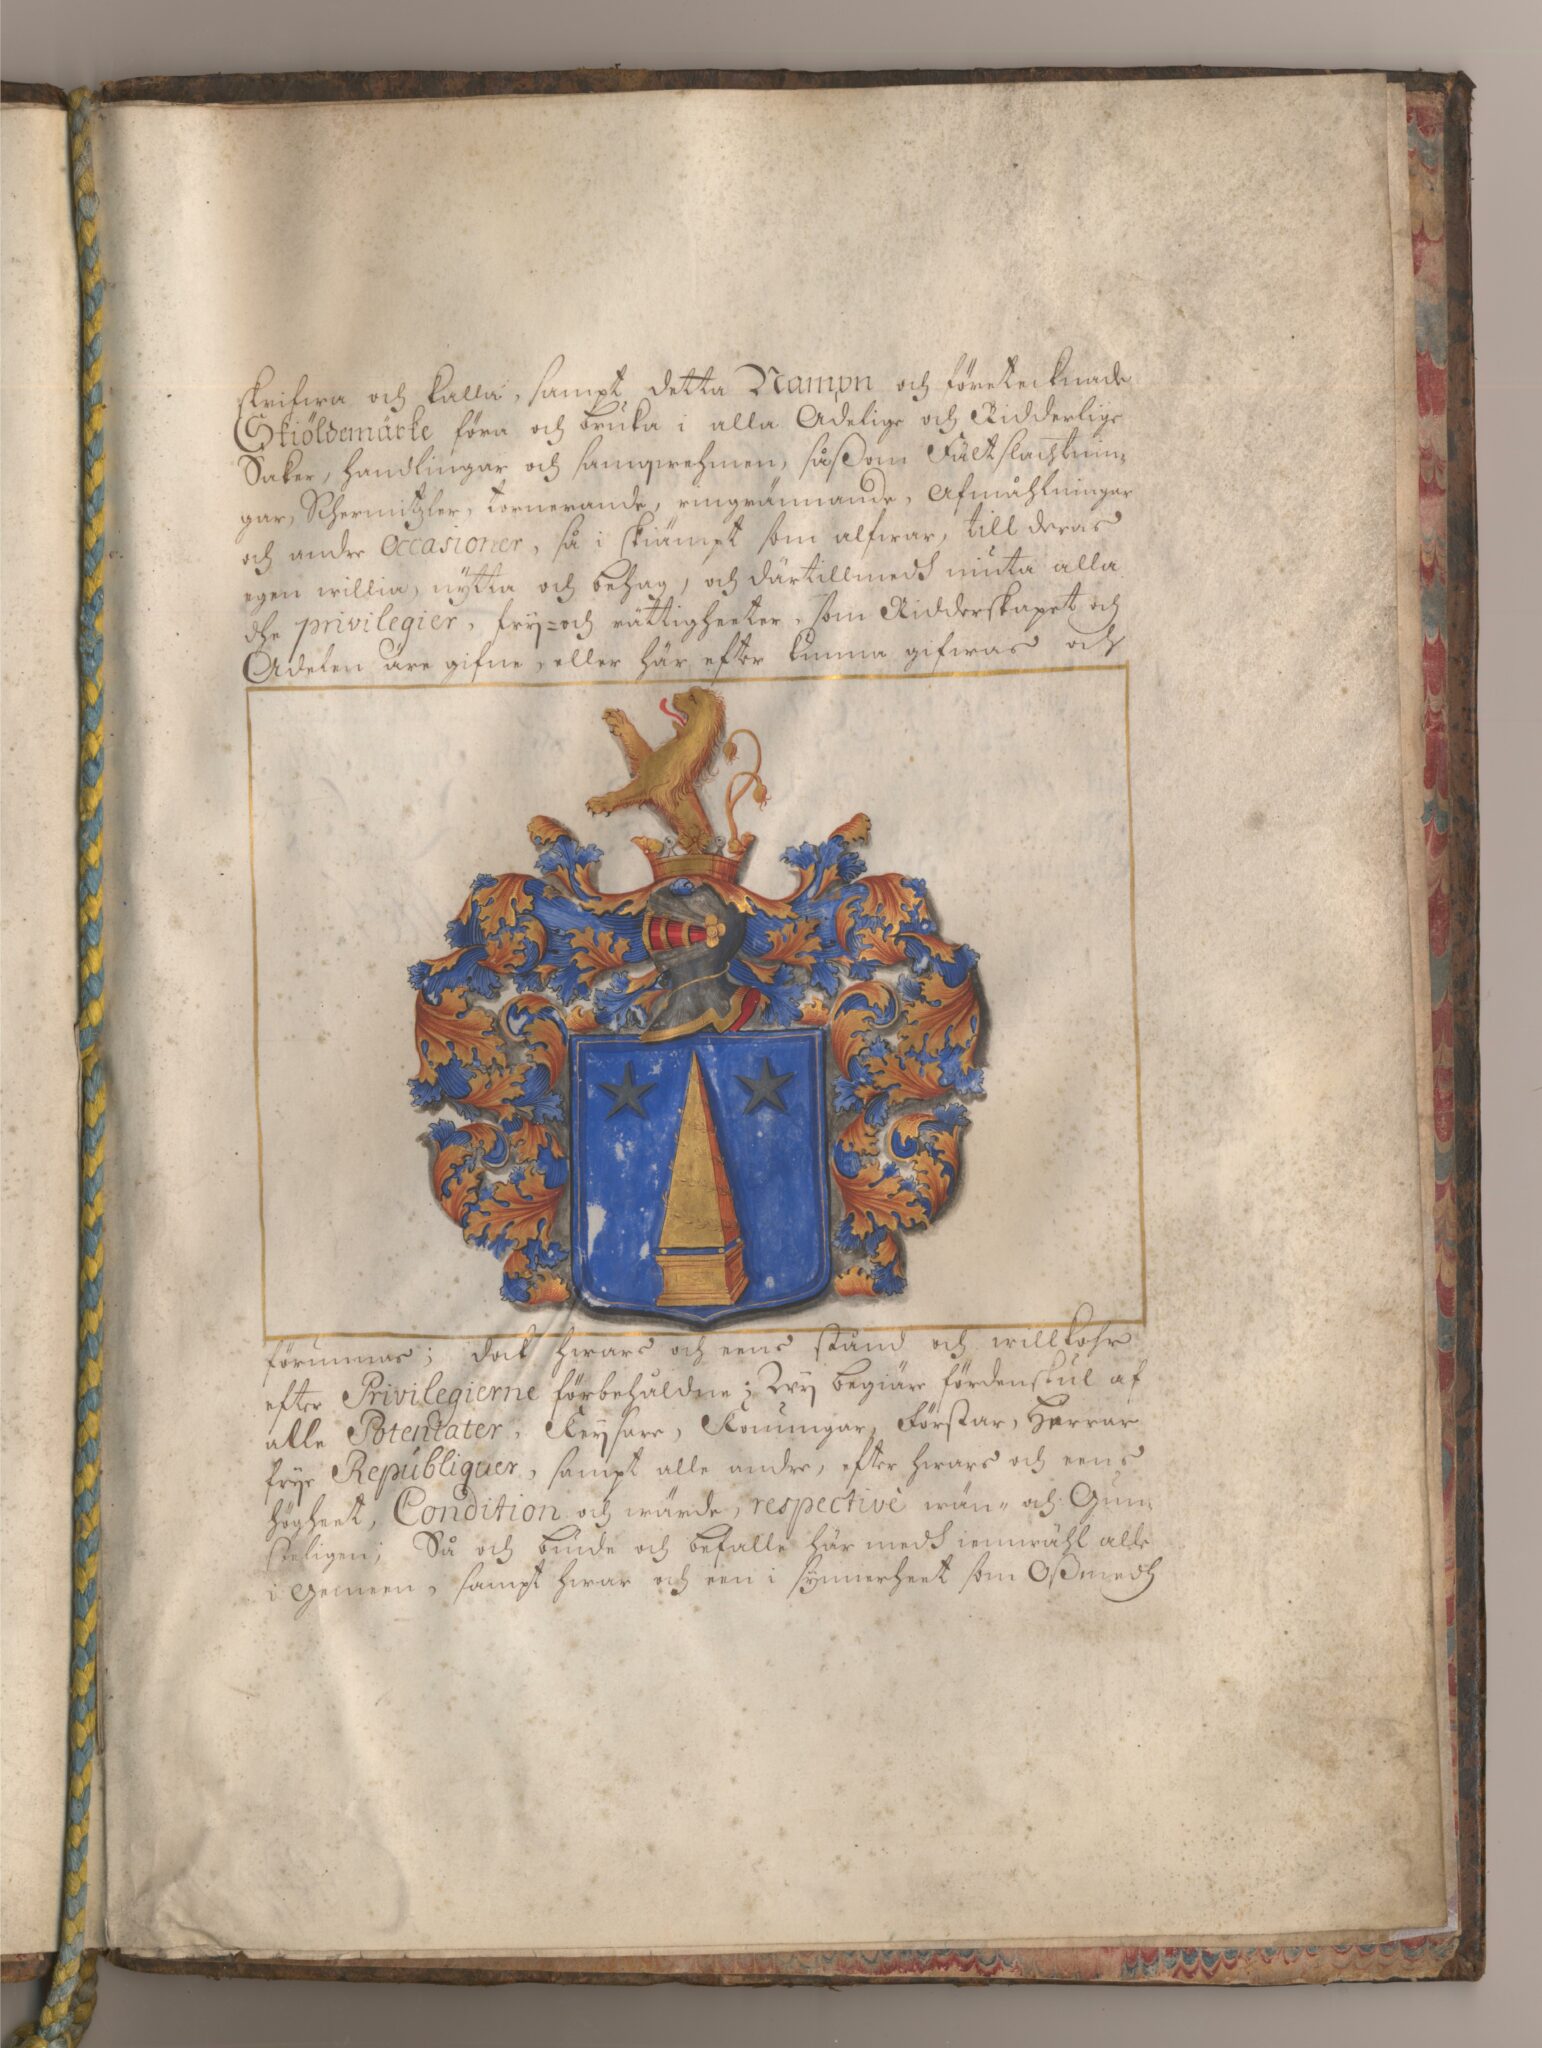 skrifwa och kalla, sampt detta Nampn och företecknade
Skiöldemärke föra och bruka i alla Adelige och Ridderlige
Saker, handlingar och samqwehmen, såßom Fältslachtnin-
gar, Schermitzler, tornerande, ringrännande, Afmåhlningar
och andre Occasioner, så i skiämpt som alfwar, till deras
egen willia, nÿtta och behag, och därtillmedh niuta alla
dhe privilegier, frÿ= och rättigheeter, som Ridderskapet och
Adelen äre gifne, eller här efter kunna gifwas och
förunnas; dock hwars och eens stånd och willkohr
efter Privilegierne förbehåldne; Wÿ begiäre fördenskul af
alle Potentater, Keÿsare, Konungar, Förstar, Herrar
frÿe Republiquer, sampt alle andre, efter hwars och eens
högheet, Condition och wärde, respectivè wän- och Gun-
steligen; Så och biude och befalle här medh iemwähl alle
i Gemeen, sampt hwar och een i sÿnnerheet som Oß medh